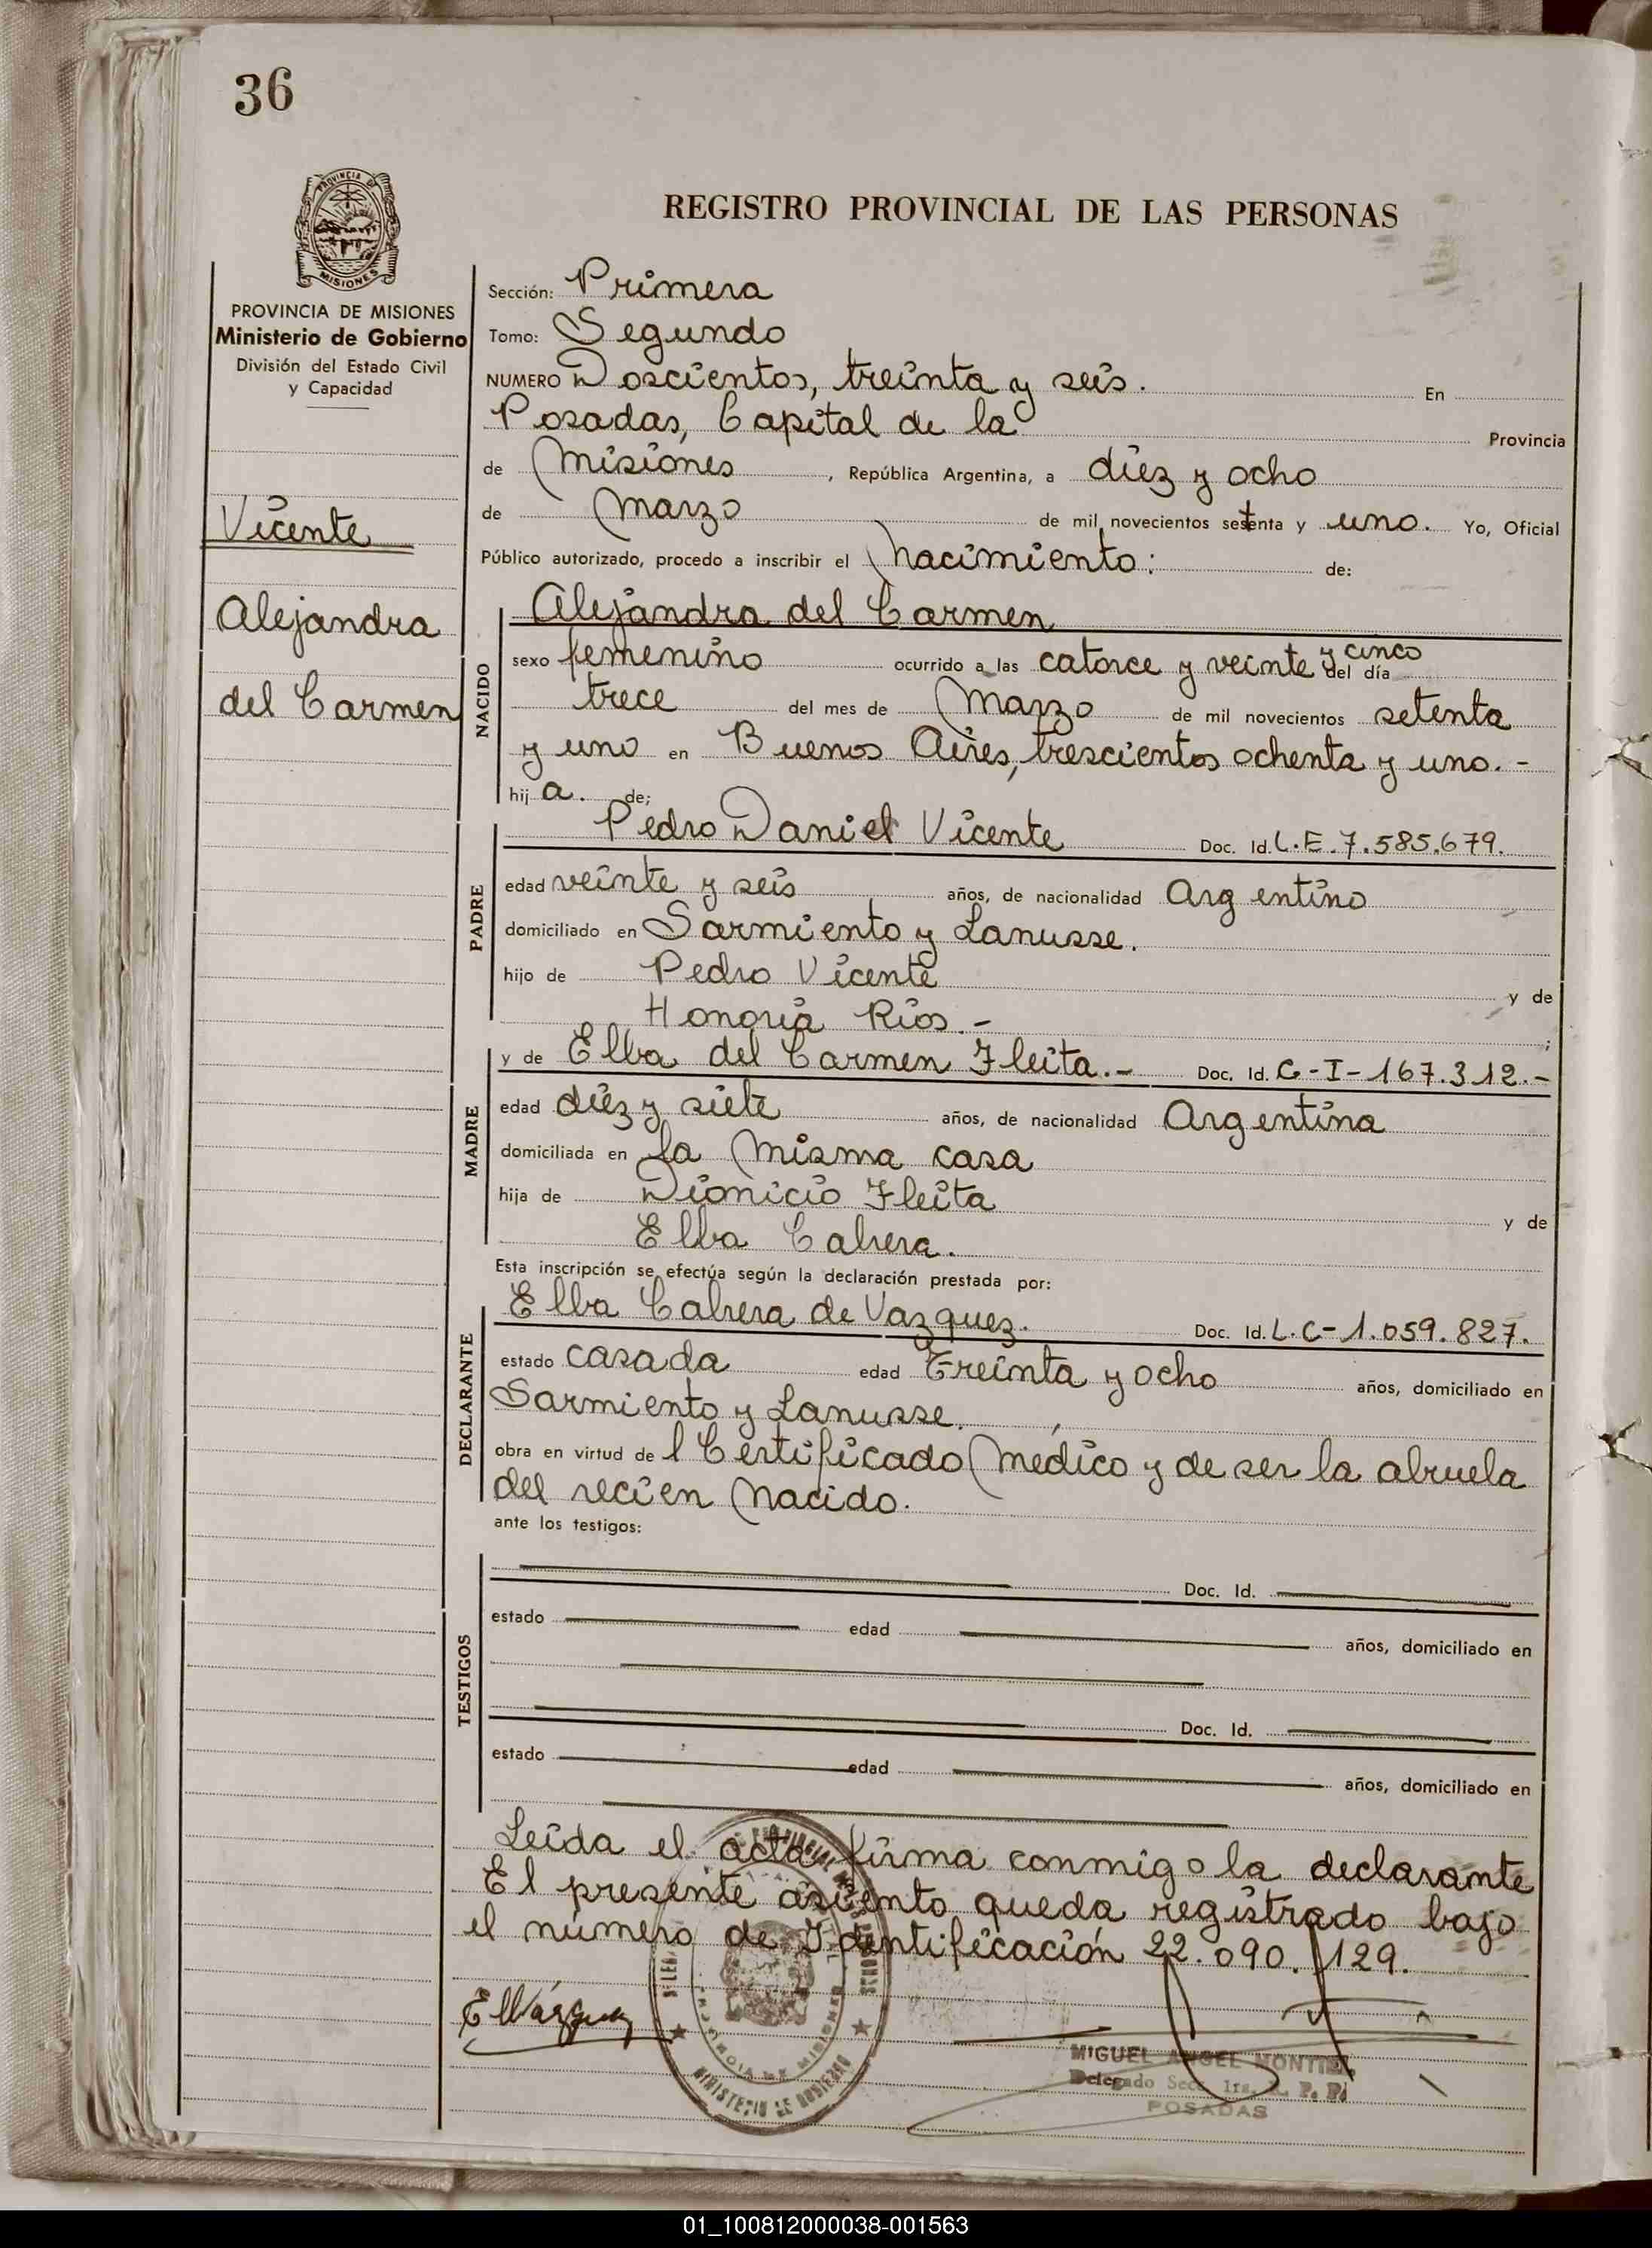 36
PROVINCIA DE
MISIONES
PROVINCIA DE MISIONES
Ministerio de Gobierno
División del Estado Civil
y Capacidad
Vicente
Alejandra
del Carmen
REGISTRO PROVINCIAL DE LAS PERSONAS
Sección: Primera
Tomo: Segundo
NUMERO Doscientos, treinta y seis. En
Posadas, Capital de la Provincia
de Misiones, República Argentina, a diez y ocho
de Marzo de mil novecientos setenta y uno. Yo, Oficial
Público autorizado, procedo a inscribir el Nacimiento: de:
NACIDO
Alejandra del Carmen
sexo femenino ocurrido a las catorce y veinte y cinco del día
trece del mes de Marzo de mil novecientos setenta
y uno en Buenos Aires, trescientos ochenta y uno.-
hija. de;
PADRE
Pedro Daniel Vicente Doc. Id. L.E. 7.585.679.
edad veinte y seis años, de nacionalidad Argentino
domiciliado en Sarmiento y Lanusse.
hijo de Pedro Vicente y de
Honoria Rios.- ;
MADRE
y de Elba del Carmen Fleita.- Doc. Id. C-I-167.312.-
edad diez y siete años, de nacionalidad Argentina
domiciliada en la misma casa
hija de Dionicio Fleita y de
Elba Cabrera.
Esta inscripción se efectúa según la declaración prestada por:
DECLARANTE
Elba Cabrera de Vazquez. Doc. Id. L.C-1.059.827.
estado casada edad Treinta y ocho años, domiciliado en
Sarmiento y Lanusse.
obra en virtud del Certificado Médico y de ser la abuela
del recien Nacido.
ante los testigos:
TESTIGOS
Doc. Id.
estado edad años, domiciliado en
Doc. Id.
estado edad años, domiciliado en
Leida el acta firma conmigo la declarante
El presente asiento queda registrado bajo
el número de Identificación 22.090.129.
E Vázquez
MINISTERIO DE GOBIERNO
PROVINCIA DE MISIONES
MIGUEL ANGEL MONTIEL
Delegado Secc. 1ra. R. P. P.
POSADAS
01_100812000038-001563